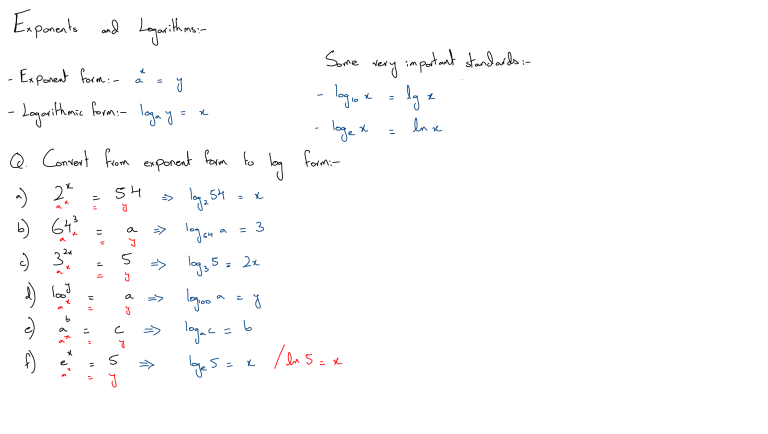 Exponents and Logarithms:-
- Exponent form:- aˣ = y
- Logarithmic form:- logₐ y = x
Some very important standards:-
- log₁₀ x = lg x
- logₑ x = ln x
Q. Convert from exponent form to log form:-
a) 2ˣ = 54 ⇒ log₂ 54 = x
aˣ = y
b) 64³ = a ⇒ log₆₄ a = 3
aˣ = y
c) 3²ˣ = 5 ⇒ log₃ 5 = 2x
aˣ = y
d) 100ʸ = a ⇒ log₁₀₀ a = y
aˣ = y
e) aᵇ = c ⇒ logₐ c = b
aˣ = y
f) eˣ = 5 ⇒ logₑ 5 = x / ln 5 = x
aˣ = y